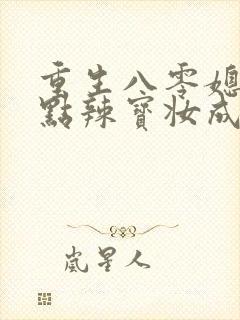 重生八零媳
點辣寶妝成
嵐星人